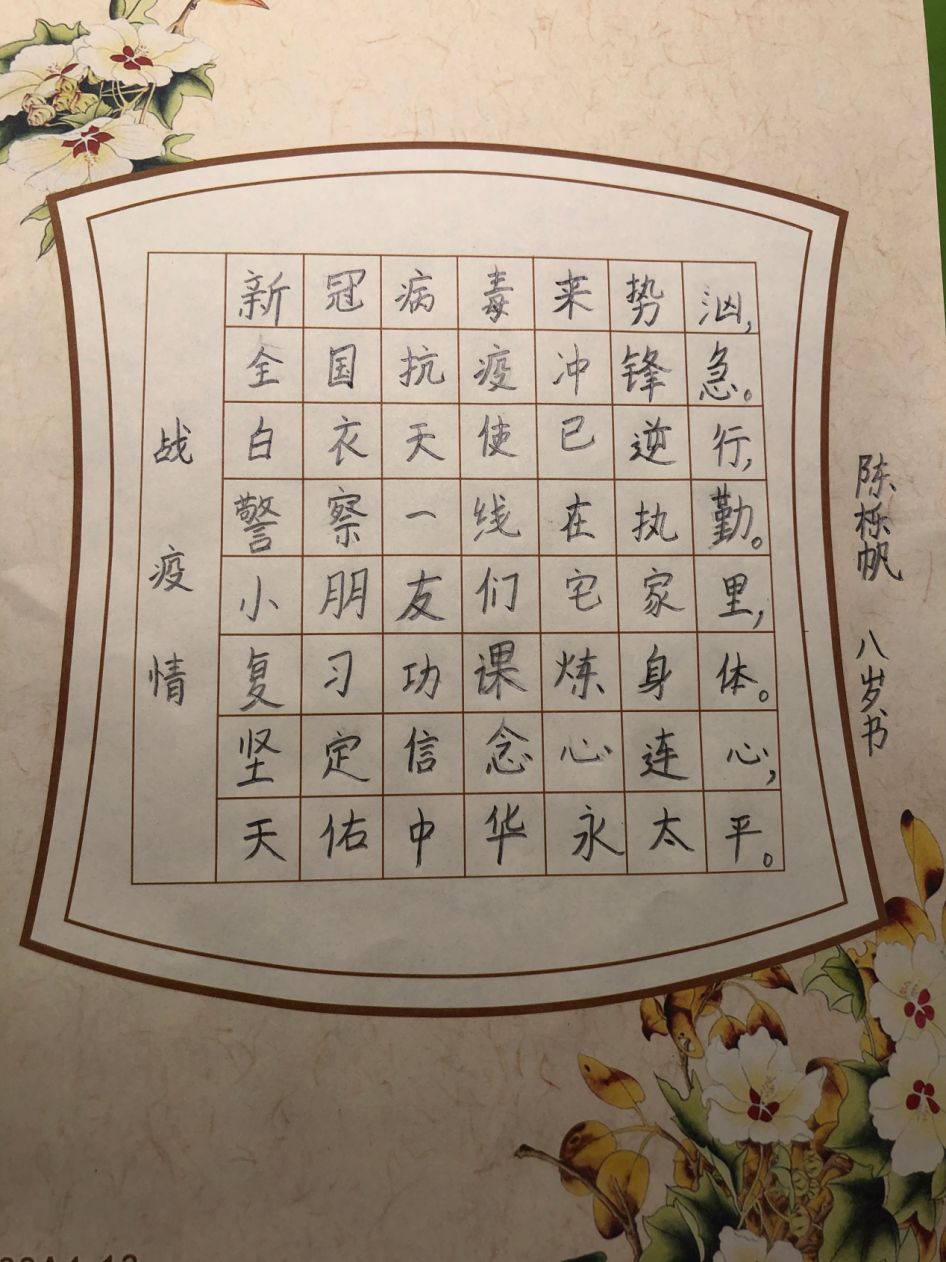 战疫情
新冠病毒来势汹,
全国抗疫冲锋急。
白衣天使已逆行,
警察一线在执勤。
小朋友们宅家里,
复习功课炼身体。
坚定信念心连心,
天佑中华永太平。
陈栎帆 八岁书